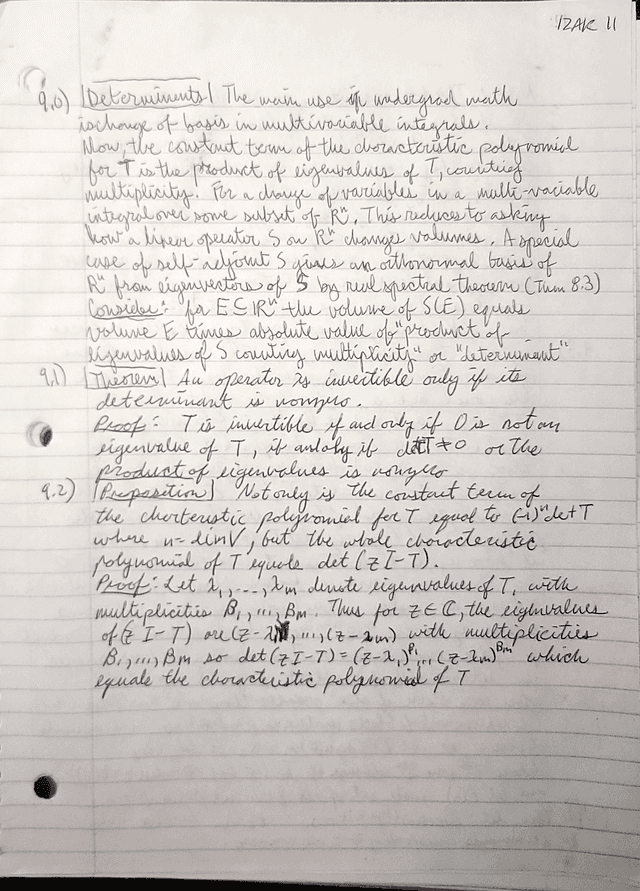 IZAK 11
9.0) |Determinents| The main use in undergrad math
is change of basis in multivariable integrals.
Now, the constant term of the characteristic polynomial
for T is the product of eigenvalues of T, counting
multiplicity. For a change of variables in a multi-variable
integral over some subset of Rⁿ. This reduces to asking
how a linear operator S on Rⁿ changes valumes. A special
case of self-adjoint S gives an orthonormal basis of
Rⁿ from eigenvectors of S by real spectral theorem (Thm 8.3)
Consider: for E⊆Rⁿ the volume of S(E) equals
volume E times absolute value of "product of
eigenvalues of S counting multiplicity" or "determinent"
9.1) |Theorem| An operator is invertible only if its
determinant is nonzero.
Proof: T is invertible if and only if 0 is not an
eigenvalue of T, if and only if det T ≠ 0 or the
product of eigenvalues is nonzero
9.2) |Proposition| Not only is the constant term of
the charteristic polynomial for T equal to (-1)ⁿ det T
where n = dim V, but the whole characteristic
polynomial of T equals det (zI-T).
Proof: Let λ₁,...,λm denote eigenvalues of T, with
multiplicities B₁,...,Bm. Thus for z∈C, the eigenvalues
of (zI-T) are (z-λ₁),...,(z-λm) with multiplicities
B₁,...,Bm so det(zI-T) = (z-λ₁)^B₁...(z-λm)^Bm which
equale the characteristic polynomial of T